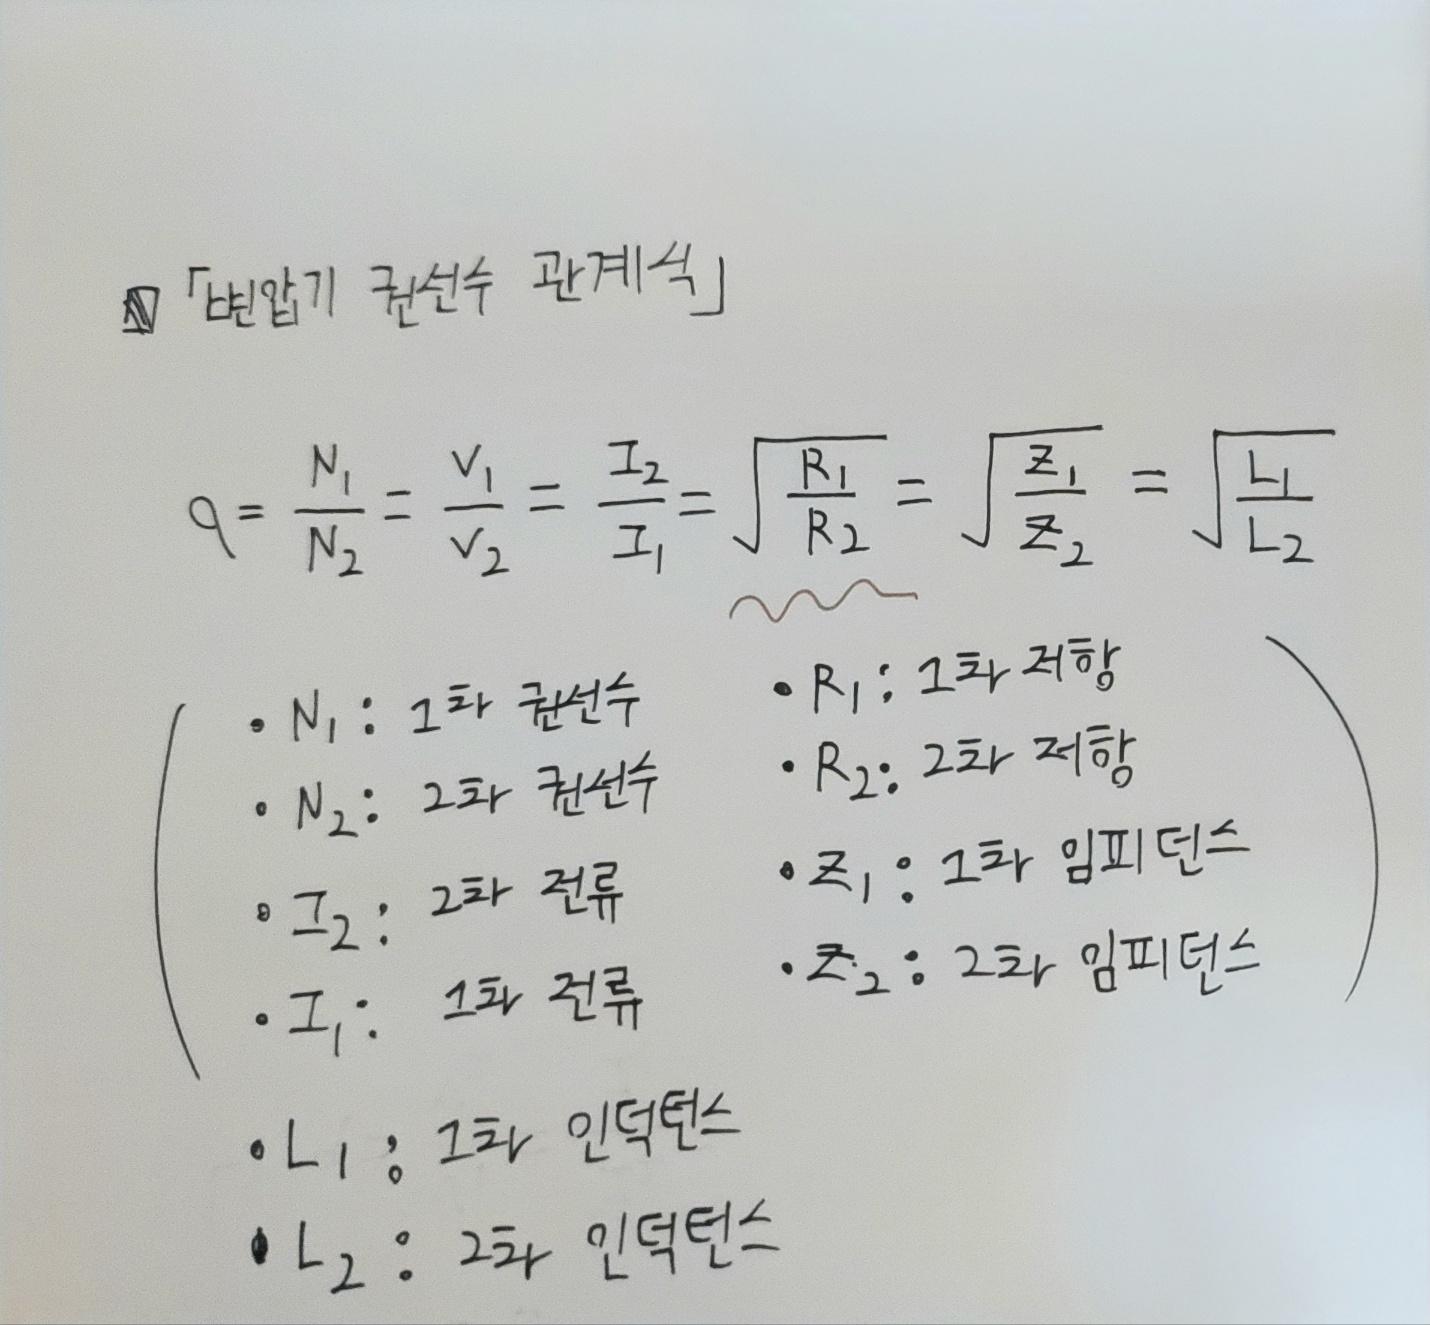 「변압기 권선수 관계식」
a = N₁/N₂ = V₁/V₂ = I₂/I₁ = √(R₁/R₂) = √(Z₁/Z₂) = √(L₁/L₂)
• N₁ : 1차 권선수
• N₂ : 2차 권선수
• I₂ : 2차 전류
• I₁ : 1차 전류
• R₁ : 1차 저항
• R₂ : 2차 저항
• Z₁ : 1차 임피던스
• Z₂ : 2차 임피던스
• L₁ : 1차 인덕턴스
• L₂ : 2차 인덕턴스